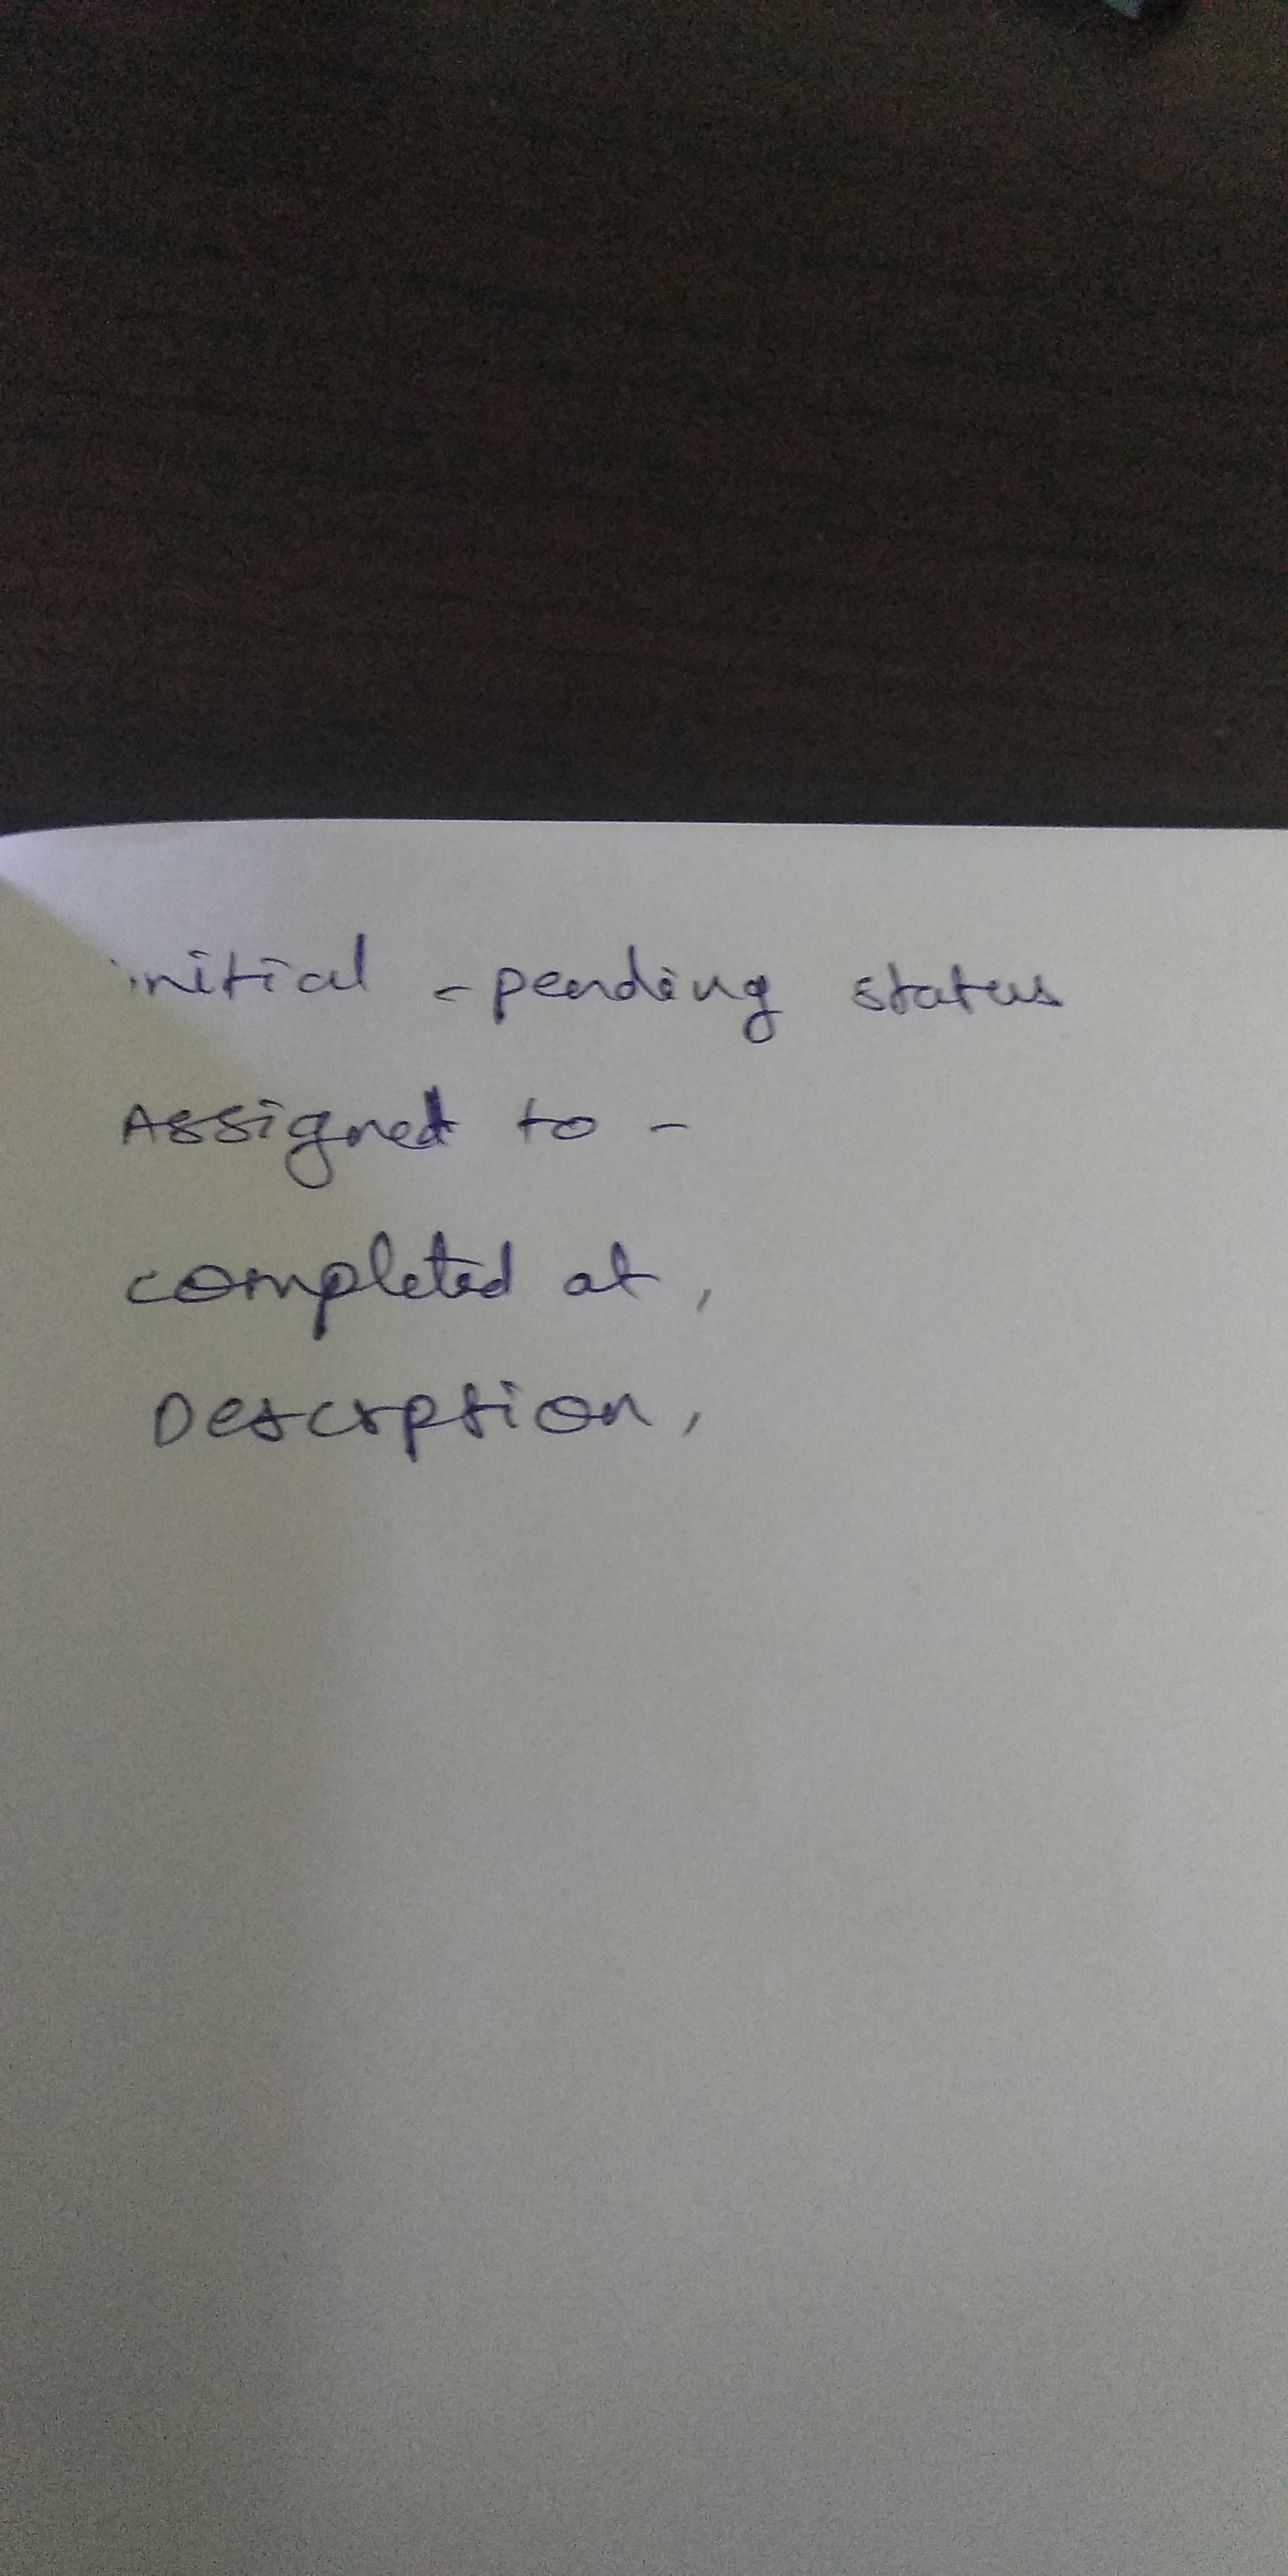 initial - pending status
Assigned to -
completed at,
Descrption,